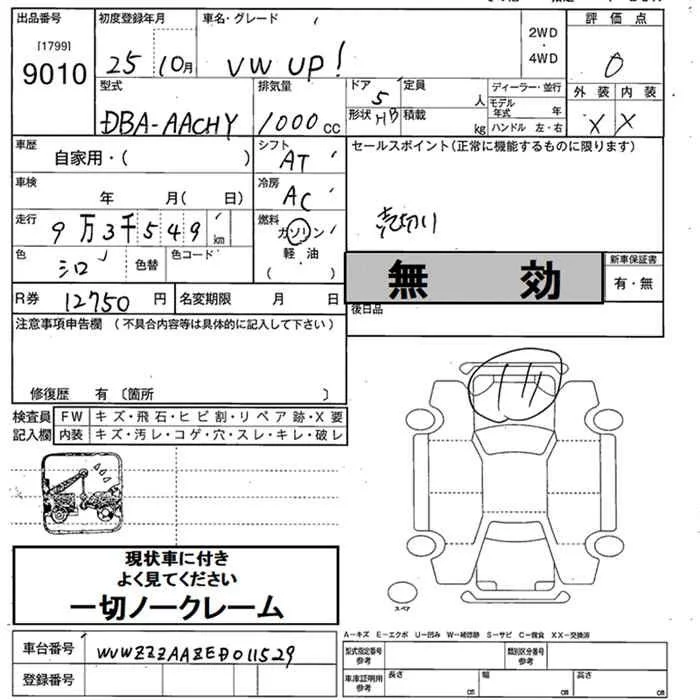 出品番号
[1799]
9010
初度登録年月
25 10月
車名・グレード
VW UP!
2WD
・
4WD
評価点
0
外装 内装
X X
型式
DBA-AACHY
排気量
1000cc
ドア 5
形状 HB
定員 人
積載 kg
ディーラー・並行
モデル年式 年
ハンドル 左・右
車歴
自家用・( )
シフト
AT
セールスポイント(正常に機能するものに限ります)
売切り
車検
年 月( 日)
冷房
AC
走行
9万3千549km
燃料
ガソリン
軽油
( )
色
シロ
色替
色コード
無効
新車保証書
有・無
R券 12750円
名変期限 月 日
後日品
注意事項申告欄 (不具合内容等は具体的に記入して下さい)
修復歴 有 〔箇所 〕
検査員
記入欄
FW キズ・飛石・ヒビ割・リペア跡・X要
内装 キズ・汚レ・コゲ・穴・スレ・キレ・破レ
現状車に付き
よく見てください
一切ノークレーム
スペア
A-キズ E-エクボ U-凹み W-補修跡 S-サビ C-腐食 XX-交換済
車台番号 WVWZZZAAZED011529
登録番号
型式指定番号
参考
類別区分番号
参考
車庫証明用
参考
長さ cm
幅 cm
高さ cm